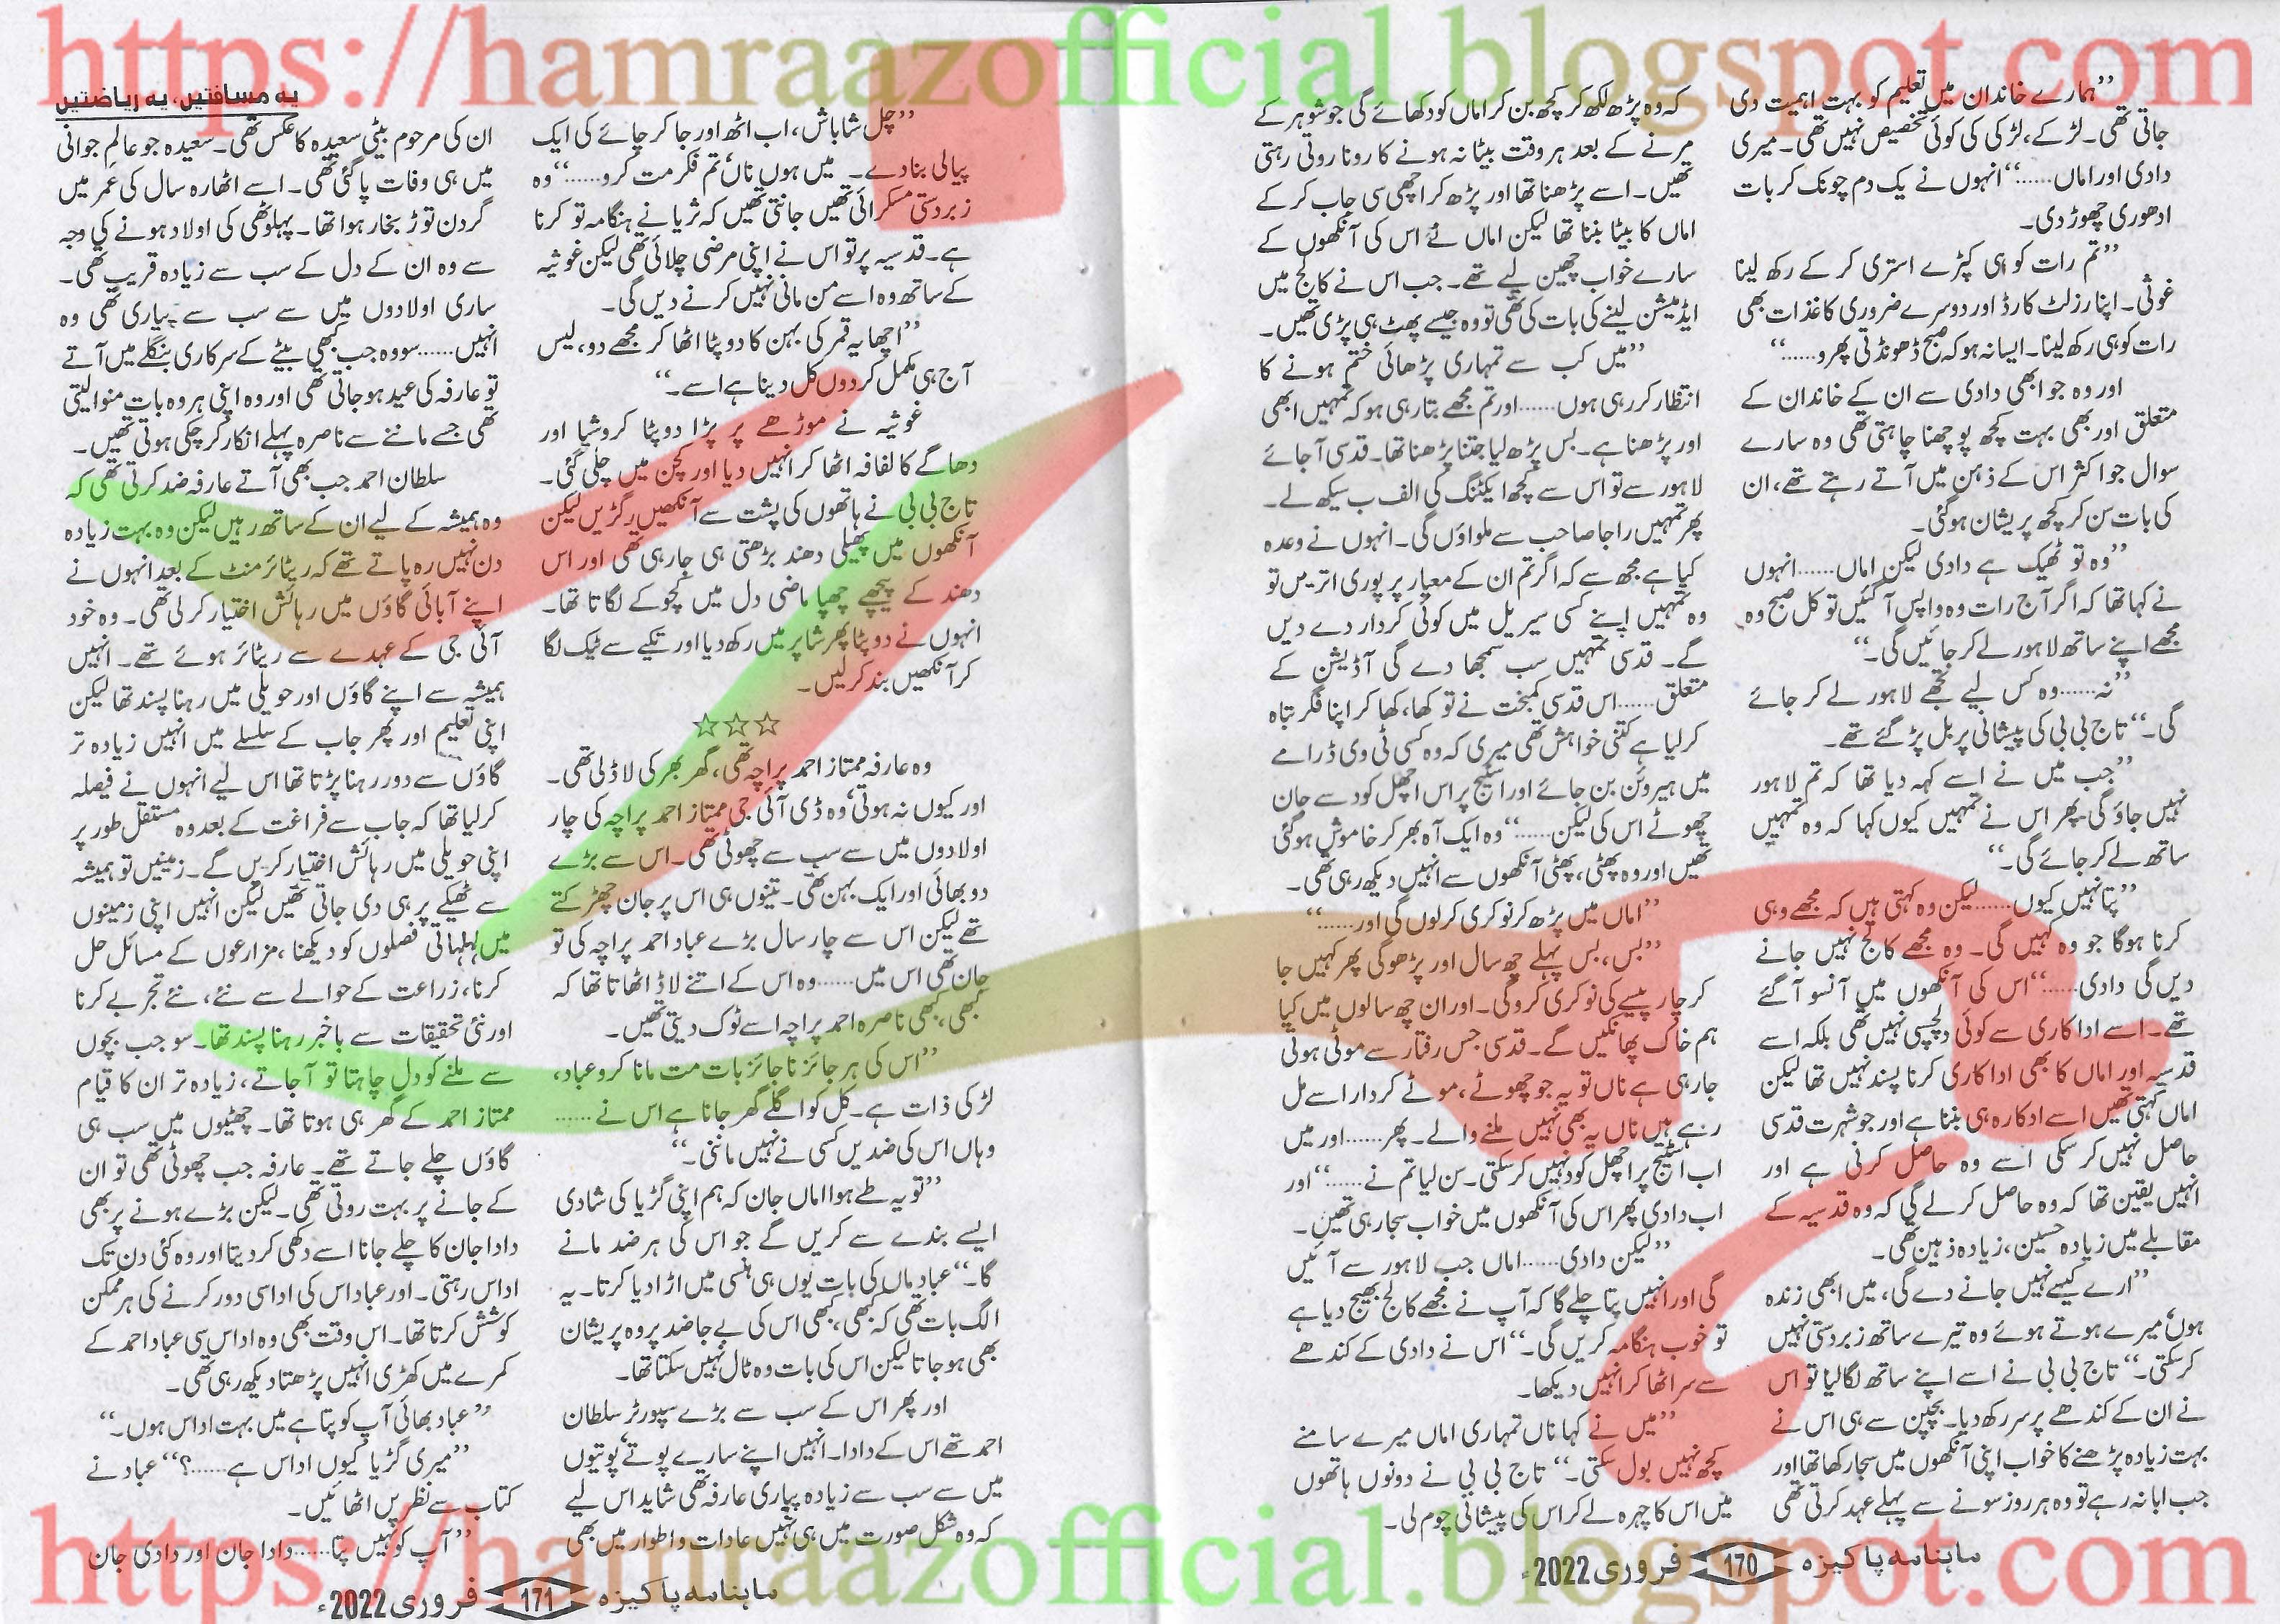 https://hamraazofficial.blogspot.com
’’ہمارے خاندان میں تعلیم کو بہت اہمیت دی
جاتی تھی۔ لڑکے، لڑکی کی کوئی تخصیص نہیں تھی۔ میری
دادی اور اماں......‘‘ انہوں نے یک دم چونک کر بات
ادھوری چھوڑ دی۔
’’تم رات کو ہی کپڑے استری کر کے رکھ لینا
غوثی۔ اپنا رزلٹ کارڈ اور دوسرے ضروری کاغذات بھی
رات کو ہی رکھ لینا۔ ایسا نہ ہو کہ صبح ڈھونڈتی پھرو......‘‘
اور وہ جو ابھی دادی سے ان کے خاندان کے
متعلق اور بھی بہت کچھ پوچھنا چاہتی تھی وہ سارے
سوال جو اکثر اس کے ذہن میں آتے رہتے تھے، ان
کی بات سن کر کچھ پریشان ہو گئی۔
’’وہ تو ٹھیک ہے دادی لیکن اماں......انہوں
نے کہا تھا کہ اگر آج رات وہ واپس آ گئیں تو کل صبح وہ
مجھے اپنے ساتھ لاہور لے کر جائیں گی۔‘‘
’’نہ......وہ کس لیے تجھے لاہور لے کر جائے
گی۔‘‘ تاج بی بی کی پیشانی پر بل پڑ گئے تھے۔
’’جب میں نے اسے کہہ دیا تھا کہ تم لاہور
نہیں جاؤ گی پھر اس نے تمہیں کیوں کہا کہ وہ تمہیں
ساتھ لے کر جائے گی۔‘‘
’’پتا نہیں کیوں......لیکن وہ کہتی ہیں کہ مجھے وہی
کرنا ہوگا جو وہ کہیں گی۔ وہ مجھے کالج نہیں جانے
دیں گی دادی......‘‘ اس کی آنکھوں میں آنسو آ گئے
تھے۔ اسے اداکاری سے کوئی دلچسپی نہیں تھی بلکہ اسے
قدسیہ اور اماں کا بھی اداکاری کرنا پسند نہیں تھا لیکن
اماں کہتی تھیں اسے ادکارہ ہی بننا ہے اور جو شہرت قدسی
حاصل نہیں کر سکی اسے وہ حاصل کرنی ہے اور
انہیں یقین تھا کہ وہ حاصل کر لے گی کہ وہ قدسیہ کے
مقابلے میں زیادہ حسین، زیادہ ذہین تھی۔
’’ارے کیسے نہیں جانے دے گی، میں ابھی زندہ
ہوں، میرے ہوتے ہوئے وہ تیرے ساتھ زبردستی نہیں
کر سکتی۔‘‘ تاج بی بی نے اسے اپنے ساتھ لگا لیا تو اس
نے ان کے کندھے پر سر رکھ دیا۔ بچپن سے ہی اس نے
بہت زیادہ پڑھنے کا خواب اپنی آنکھوں میں سجا رکھا تھا اور
جب ابا نہ رہے تو وہ ہر روز سونے سے پہلے عہد کرتی تھی
کہ وہ پڑھ لکھ کر کچھ بن کر اماں کو دکھائے گی جو شوہر کے
مرنے کے بعد ہر وقت بیٹا نہ ہونے کا رونا روتی رہتی
تھیں۔ اسے پڑھنا تھا اور پڑھ کر اچھی سی جاب کر کے
اماں کا بیٹا بننا تھا لیکن اماں نے اس کی آنکھوں کے
سارے خواب چھین لیے تھے۔ جب اس نے کالج میں
ایڈمیشن لینے کی بات کی تھی تو وہ جیسے پھٹ ہی پڑی تھیں۔
’’میں کب سے تمہاری پڑھائی ختم ہونے کا
انتظار کر رہی ہوں......اور تم مجھے بتا رہی ہو کہ تمہیں ابھی
اور پڑھنا ہے۔ بس پڑھ لیا جتنا پڑھنا تھا۔ قدسی آ جائے
لاہور سے تو اس سے کچھ ایکٹنگ کی الف ب سیکھ لے۔
پھر تمہیں راجا صاحب سے ملواؤں گی۔ انہوں نے وعدہ
کیا ہے مجھ سے کہ اگر تم ان کے معیار پر پوری اتریں تو
وہ تمہیں اپنے کسی سیریل میں کوئی کردار دے دیں
گے۔ قدسی تمہیں سب سمجھا دے گی آڈیشن کے
متعلق......اس قدسی کمبخت نے تو کھا، کھا کر اپنا فگر تباہ
کر لیا ہے کتنی خواہش تھی میری کہ وہ کسی ٹی وی ڈرامے
میں ہیروئن بن جائے اور اسٹیج پر اس اچھل کود سے جان
چھوٹے اس کی لیکن......‘‘ وہ ایک آہ بھر کر خاموش ہو گئی
تھیں اور وہ پھٹی، پھٹی آنکھوں سے انہیں دیکھ رہی تھی۔
’’اماں میں پڑھ کر نوکری کر لوں گی اور......‘‘
’’بس، بس پہلے چھ سال اور پڑھو گی پھر کہیں جا
کر چار پیسے کی نوکری کرو گی۔ اور ان چھ سالوں میں کیا
ہم خاک پھانکیں گے۔ قدسی جس رفتار سے موٹی ہوتی
جا رہی ہے ناں تو یہ جو چھوٹے، موٹے کردار اسے مل
رہے ہیں ناں یہ بھی نہیں ملنے والے۔ پھر......اور میں
اب اسٹیج پر اچھل کود نہیں کر سکتی۔ سن لیا تم نے......‘‘ اور
اب دادی پھر اس کی آنکھوں میں خواب سجا رہی تھیں۔
’’لیکن دادی......اماں جب لاہور سے آئیں
گی اور انہیں پتا چلے گا کہ آپ نے مجھے کالج بھیج دیا ہے
تو خوب ہنگامہ کریں گی۔‘‘ اس نے دادی کے کندھے
سے سر اٹھا کر انہیں دیکھا۔
’’میں نے کہا ناں تمہاری اماں میرے سامنے
کچھ نہیں بول سکتی۔‘‘ تاج بی بی نے دونوں ہاتھوں
میں اس کا چہرہ لے کر اس کی پیشانی چوم لی۔
ماہنامہ پاکیزہ 170 فروری 2022ء
یہ مسافتیں، یہ ریاضتیں
’’چل شاباش، اب اٹھ اور جا کر چائے کی ایک
پیالی بنا دے۔ میں ہوں ناں تم فکر مت کرو......‘‘ وہ
زبردستی مسکرائی تھیں جانتی تھیں کہ ثریا نے ہنگامہ تو کرنا
ہے۔ قدسیہ پر تو اس نے اپنی مرضی چلائی تھی لیکن غوثیہ
کے ساتھ وہ اسے من مانی نہیں کرنے دیں گی۔
’’اچھا یہ قمر کی بہن کا دوپٹا اٹھا کر مجھے دو، لیس
آج ہی مکمل کر دوں کل دینا ہے اسے۔‘‘
غوثیہ نے موڑھے پر پڑا دوپٹا کروشیا اور
دھاگے کا لفافہ اٹھا کر انہیں دیا اور کچن میں چلی گئی۔
تاج بی بی نے ہاتھوں کی پشت سے آنکھیں رگڑیں لیکن
آنکھوں میں پھیلی دھند بڑھتی ہی جا رہی تھی اور اس
دھند کے پیچھے چھپا ماضی دل میں کچوکے لگاتا تھا۔
انہوں نے دوپٹا پھر شاپر میں رکھ دیا اور تکیے سے ٹیک لگا
کر آنکھیں بند کر لیں۔
☆☆☆
وہ عارفہ ممتاز احمد پراچہ تھی، گھر بھر کی لاڈلی تھی۔
اور کیوں نہ ہوتی، وہ ڈی آئی جی ممتاز احمد پراچہ کی چار
اولادوں میں سے سب سے چھوٹی تھی۔ اس سے بڑے
دو بھائی اور ایک بہن تھی۔ تینوں ہی اس پر جان چھڑکتے
تھے لیکن اس سے چار سال بڑے عباد احمد پراچہ کی تو
جان تھی اس میں......وہ اس کے اتنے لاڈ اٹھاتا تھا کہ
کبھی، کبھی ناصرہ احمد پراچہ اسے ٹوک دیتی تھیں۔
’’اس کی ہر جائز ناجائز بات مت مانا کرو عباد،
لڑکی ذات ہے۔ کل کو اگلے گھر جانا ہے اس نے......
وہاں اس کی ضدیں کسی نے نہیں ماننی۔‘‘
’’تو یہ طے ہوا اماں جان کہ ہم اپنی گڑیا کی شادی
ایسے بندے سے کریں گے جو اس کی ہر ضد مانے
گا۔‘‘ عباد ماں کی بات یوں ہی ہنسی میں اڑا دیا کرتا۔ یہ
الگ بات تھی کہ کبھی، کبھی اس کی بے جا ضد پر وہ پریشان
بھی ہو جاتا لیکن اس کی بات وہ ٹال نہیں سکتا تھا۔
اور پھر اس کے سب سے بڑے سپورٹر سلطان
احمد تھے اس کے دادا۔ انہیں اپنے سارے پوتے، پوتیوں
میں سے سب سے زیادہ پیاری عارفہ تھی شاید اس لیے
کہ وہ شکل صورت میں ہی نہیں عادات و اطوار میں بھی
ان کی مرحوم بیٹی سعیدہ کا عکس تھی۔ سعیدہ جو عالمِ جوانی
میں ہی وفات پا گئی تھی۔ اسے اٹھارہ سال کی عمر میں
گردن توڑ بخار ہوا تھا۔ پہلوٹھی کی اولاد ہونے کی وجہ
سے وہ ان کے دل کے سب سے زیادہ قریب تھی۔
ساری اولادوں میں سے سب سے پیاری تھی وہ
انہیں......سو وہ جب کبھی بیٹے کے سرکاری بنگلے میں آتے
تو عارفہ کی عید ہو جاتی تھی اور وہ اپنی ہر وہ بات منوا لیتی
تھی جسے ماننے سے ناصرہ پہلے انکار کر چکی ہوتی تھیں۔
سلطان احمد جب بھی آتے عارفہ ضد کرتی تھی کہ
وہ ہمیشہ کے لیے ان کے ساتھ رہیں لیکن وہ بہت زیادہ
دن نہیں رہ پاتے تھے کہ ریٹائرمنٹ کے بعد انہوں نے
اپنے آبائی گاؤں میں رہائش اختیار کر لی تھی۔ وہ خود
آئی جی کے عہدے سے ریٹائر ہوئے تھے۔ انہیں
ہمیشہ سے اپنے گاؤں اور حویلی میں رہنا پسند تھا لیکن
اپنی تعلیم اور پھر جاب کے سلسلے میں انہیں زیادہ تر
گاؤں سے دور رہنا پڑتا تھا اس لیے انہوں نے فیصلہ
کر لیا تھا کہ جاب سے فراغت کے بعد وہ مستقل طور پر
اپنی حویلی میں رہائش اختیار کریں گے۔ زمینیں تو ہمیشہ
سے ٹھیکے پر ہی دی جاتی تھیں لیکن انہیں اپنی زمینوں
میں لہلہاتی فصلوں کو دیکھنا، مزارعوں کے مسائل حل
کرنا، زراعت کے حوالے سے نئے، نئے تجربے کرنا
اور نئی تحقیقات سے باخبر رہنا پسند تھا۔ سو جب بچوں
سے ملنے کو دل چاہتا تو آ جاتے، زیادہ تر ان کا قیام
ممتاز احمد کے گھر ہی ہوتا تھا۔ چھٹیوں میں سب ہی
گاؤں چلے جاتے تھے۔ عارفہ جب چھوٹی تھی تو ان
کے جانے پر بہت روتی تھی۔ لیکن بڑے ہونے پر بھی
دادا جان کا چلے جانا اسے دکھی کر دیتا اور وہ کئی دن تک
اداس رہتی۔ اور عباد اس کی اداسی دور کرنے کی ہر ممکن
کوشش کرتا تھا۔ اس وقت بھی وہ اداس سی عباد احمد کے
کمرے میں کھڑی انہیں پڑھتا دیکھ رہی تھی۔
’’عباد بھائی آپ کو پتا ہے میں بہت اداس ہوں۔‘‘
’’میری گڑیا کیوں اداس ہے......؟‘‘ عباد نے
کتاب سے نظریں اٹھائیں۔
’’آپ کو نہیں پتا......دادا جان اور دادی جان
ماہنامہ پاکیزہ 171 فروری 2022ء
https://hamraazofficial.blogspot.com